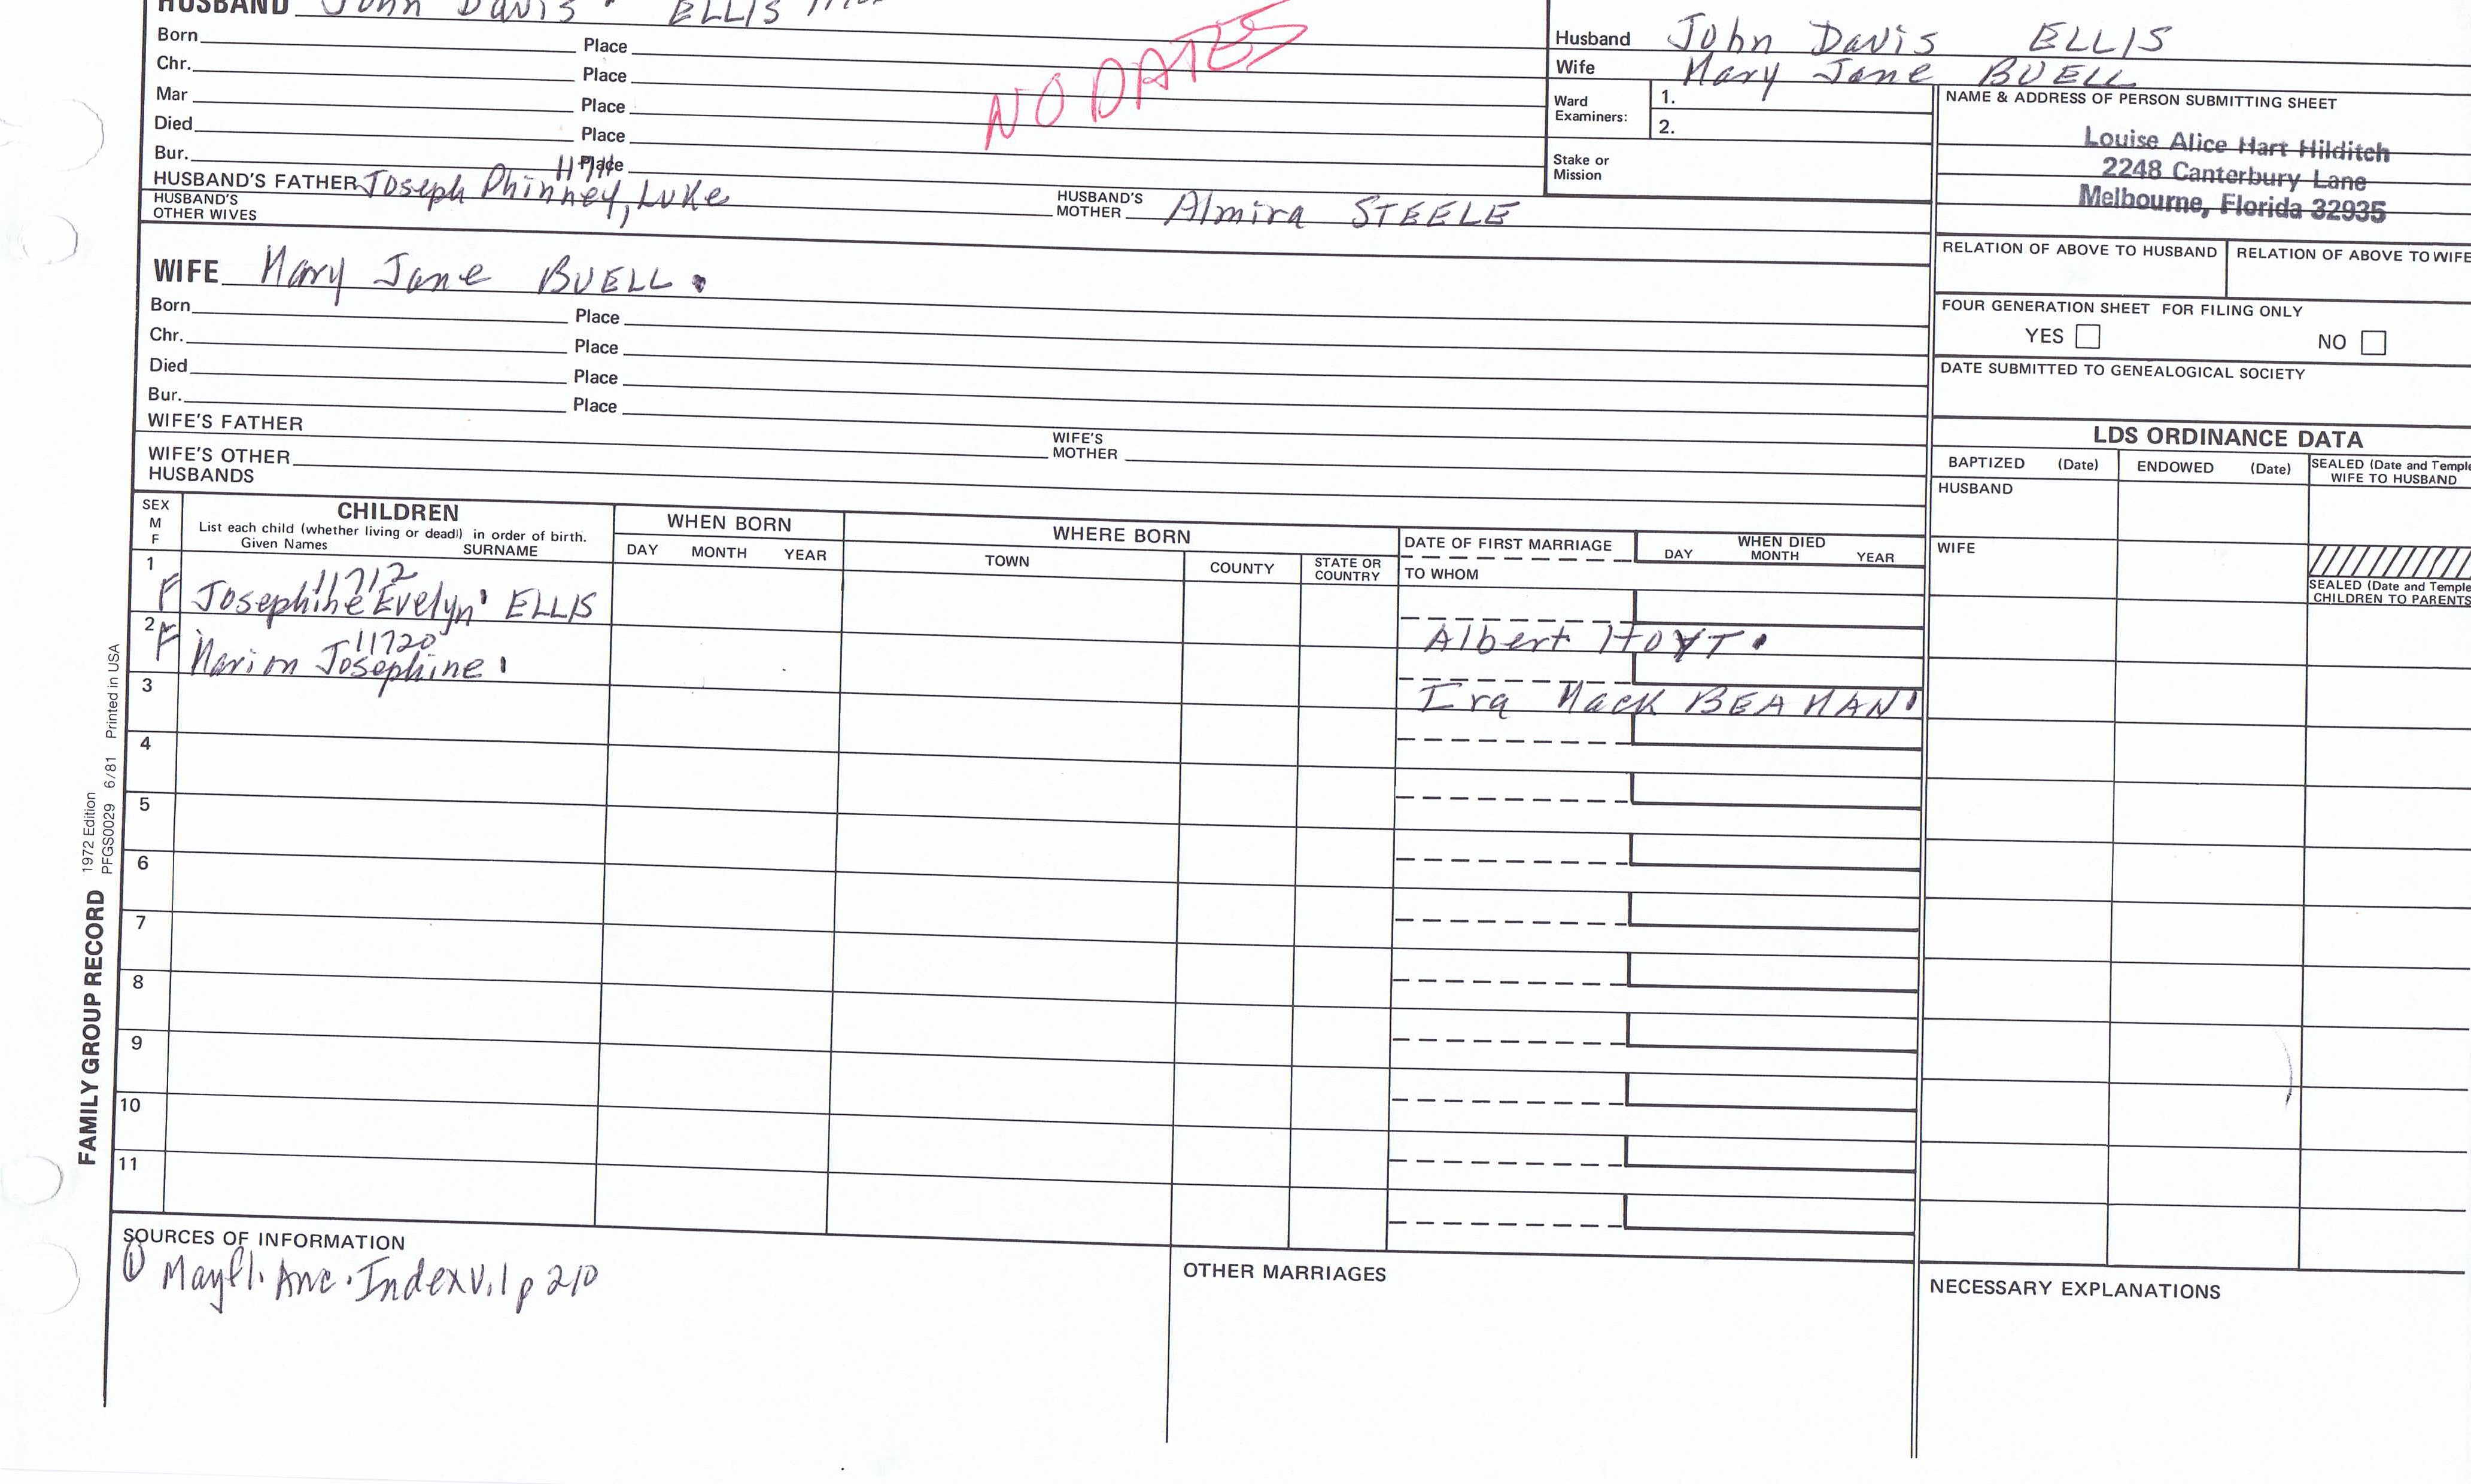 HUSBAND John Davis ELLIS
Born Place
Chr. Place
Mar Place
Died Place
Bur. Place
NO DATES
HUSBAND'S FATHER Joseph Phinney, Luke HUSBAND'S MOTHER Almira STEELE
HUSBAND'S OTHER WIVES
Husband John Davis ELLIS
Wife Mary Jane BUELL
Ward Examiners: 1.
2.
Stake or Mission
NAME & ADDRESS OF PERSON SUBMITTING SHEET
Louise Alice Hart Hilditch
2248 Canterbury Lane
Melbourne, Florida 32935
RELATION OF ABOVE TO HUSBAND RELATION OF ABOVE TO WIFE
FOUR GENERATION SHEET FOR FILING ONLY
YES NO
DATE SUBMITTED TO GENEALOGICAL SOCIETY
WIFE Mary Jane BUELL.
Born Place
Chr. Place
Died Place
Bur. Place
WIFE'S FATHER WIFE'S MOTHER
WIFE'S OTHER HUSBANDS
LDS ORDINANCE DATA
BAPTIZED (Date) ENDOWED (Date) SEALED (Date and Temple
WIFE TO HUSBAND
HUSBAND
WIFE
SEALED (Date and Temple
CHILDREN TO PARENTS
SEX M F
CHILDREN
List each child (whether living or dead) in order of birth.
Given Names SURNAME
WHEN BORN
DAY MONTH YEAR
WHERE BORN
TOWN COUNTY STATE OR COUNTRY
DATE OF FIRST MARRIAGE
TO WHOM
WHEN DIED
DAY MONTH YEAR
1 11712
F Josephine Evelyn ELLIS
Albert HOYT
2 11720
F Marion Josephine
Ira Mack BEAMAN
3
4
5
6
7
8
9
10
11
FAMILY GROUP RECORD 1972 Edition
PFGS0029 6/81 Printed in USA
SOURCES OF INFORMATION
① Mayfl. Anc. Index V.1 p 210
OTHER MARRIAGES
NECESSARY EXPLANATIONS